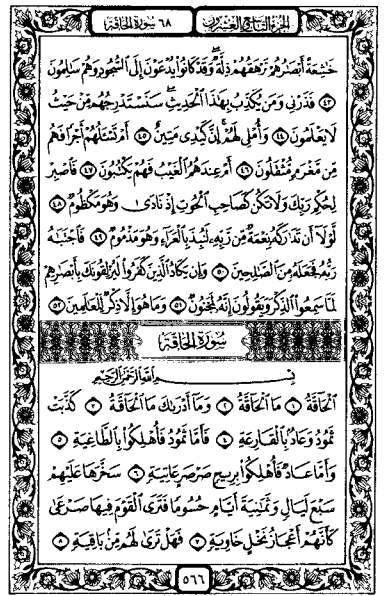 الجزء التاسع والعشرون
٦٨ سورة الحاقة
خَٰشِعَةً أَبْصَٰرُهُمْ تَرْهَقُهُمْ ذِلَّةٌ وَقَدْ كَانُوا۟ يُدْعَوْنَ إِلَى ٱلسُّجُودِ وَهُمْ سَٰلِمُونَ
٤٣ فَذَرْنِى وَمَن يُكَذِّبُ بِهَٰذَا ٱلْحَدِيثِ سَنَسْتَدْرِجُهُم مِّنْ حَيْثُ
لَا يَعْلَمُونَ ٤٤ وَأُمْلِى لَهُمْ إِنَّ كَيْدِى مَتِينٌ ٤٥ أَمْ تَسْـَٔلُهُمْ أَجْرًا فَهُم
مِّن مَّغْرَمٍ مُّثْقَلُونَ ٤٦ أَمْ عِندَهُمُ ٱلْغَيْبُ فَهُمْ يَكْتُبُونَ ٤٧ فَٱصْبِرْ
لِحُكْمِ رَبِّكَ وَلَا تَكُن كَصَاحِبِ ٱلْحُوتِ إِذْ نَادَىٰ وَهُوَ مَكْظُومٌ ٤٨
لَّوْلَآ أَن تَدَٰرَكَهُۥ نِعْمَةٌ مِّن رَّبِّهِۦ لَنُبِذَ بِٱلْعَرَآءِ وَهُوَ مَذْمُومٌ ٤٩ فَٱجْتَبَٰهُ
رَبُّهُۥ فَجَعَلَهُۥ مِنَ ٱلصَّٰلِحِينَ ٥٠ وَإِن يَكَادُ ٱلَّذِينَ كَفَرُوا۟ لَيُزْلِقُونَكَ بِأَبْصَٰرِهِمْ
لَمَّا سَمِعُوا۟ ٱلذِّكْرَ وَيَقُولُونَ إِنَّهُۥ لَمَجْنُونٌ ٥١ وَمَا هُوَ إِلَّا ذِكْرٌ لِّلْعَٰلَمِينَ ٥٢
سُورَةُ الحَاقَّةِ
بِسْمِ ٱللَّهِ ٱلرَّحْمَٰنِ ٱلرَّحِيمِ
ٱلْحَآقَّةُ ١ مَا ٱلْحَآقَّةُ ٢ وَمَآ أَدْرَىٰكَ مَا ٱلْحَآقَّةُ ٣ كَذَّبَتْ
ثَمُودُ وَعَادٌۢ بِٱلْقَارِعَةِ ٤ فَأَمَّا ثَمُودُ فَأُهْلِكُوا۟ بِٱلطَّاغِيَةِ ٥
وَأَمَّا عَادٌ فَأُهْلِكُوا۟ بِرِيحٍ صَرْصَرٍ عَاتِيَةٍ ٦ سَخَّرَهَا عَلَيْهِمْ
سَبْعَ لَيَالٍ وَثَمَٰنِيَةَ أَيَّامٍ حُسُومًا فَتَرَى ٱلْقَوْمَ فِيهَا صَرْعَىٰ
كَأَنَّهُمْ أَعْجَازُ نَخْلٍ خَاوِيَةٍ ٧ فَهَلْ تَرَىٰ لَهُم مِّنۢ بَاقِيَةٍ ٨
٥٦٦